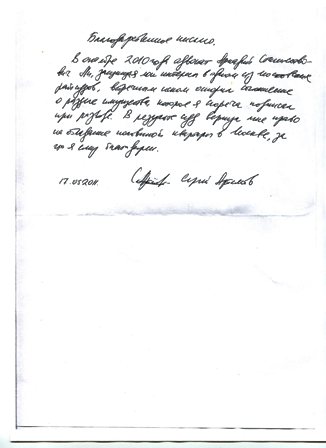 Благодарственное письмо.
В октябре 2010 года адвокат Аркадий Станиславо-
вич, защищая мои интересы в одном из московских
райсудов, встречным иском оспорил соглашение
о разделе имущества, которое я подписал
при разводе. В результате суд вернул мне право
на владение половиной квартиры в Москве, за
что я ему благодарен.
17.05.2011. Сергей